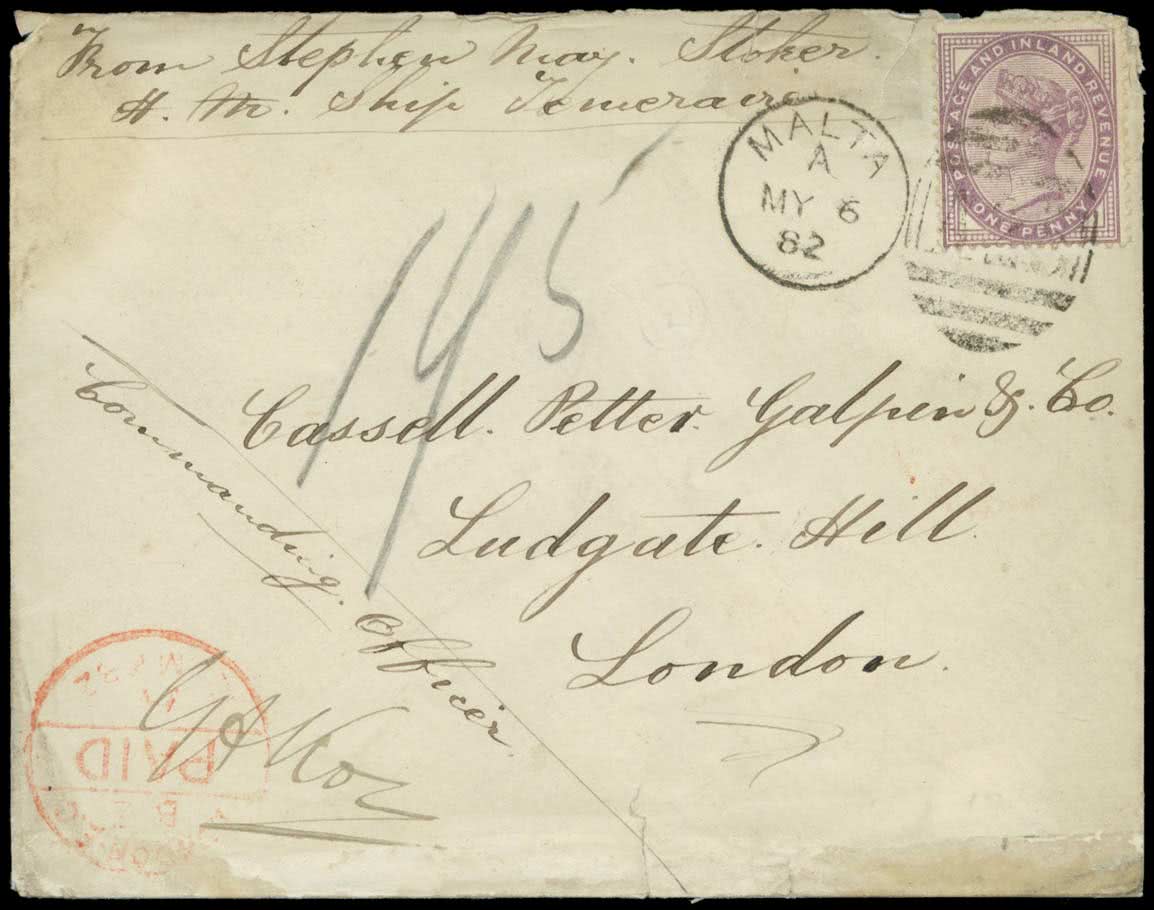 From Stephen May. Stoker.
H. M. Ship Temeraire
POSTAGE AND INLAND REVENUE
ONE PENNY
MALTA
A
MY 6
82
145
Cassell. Petter. Galpin & Co.
Ludgate. Hill.
London.
Commanding. Officer
LONDON
PAID